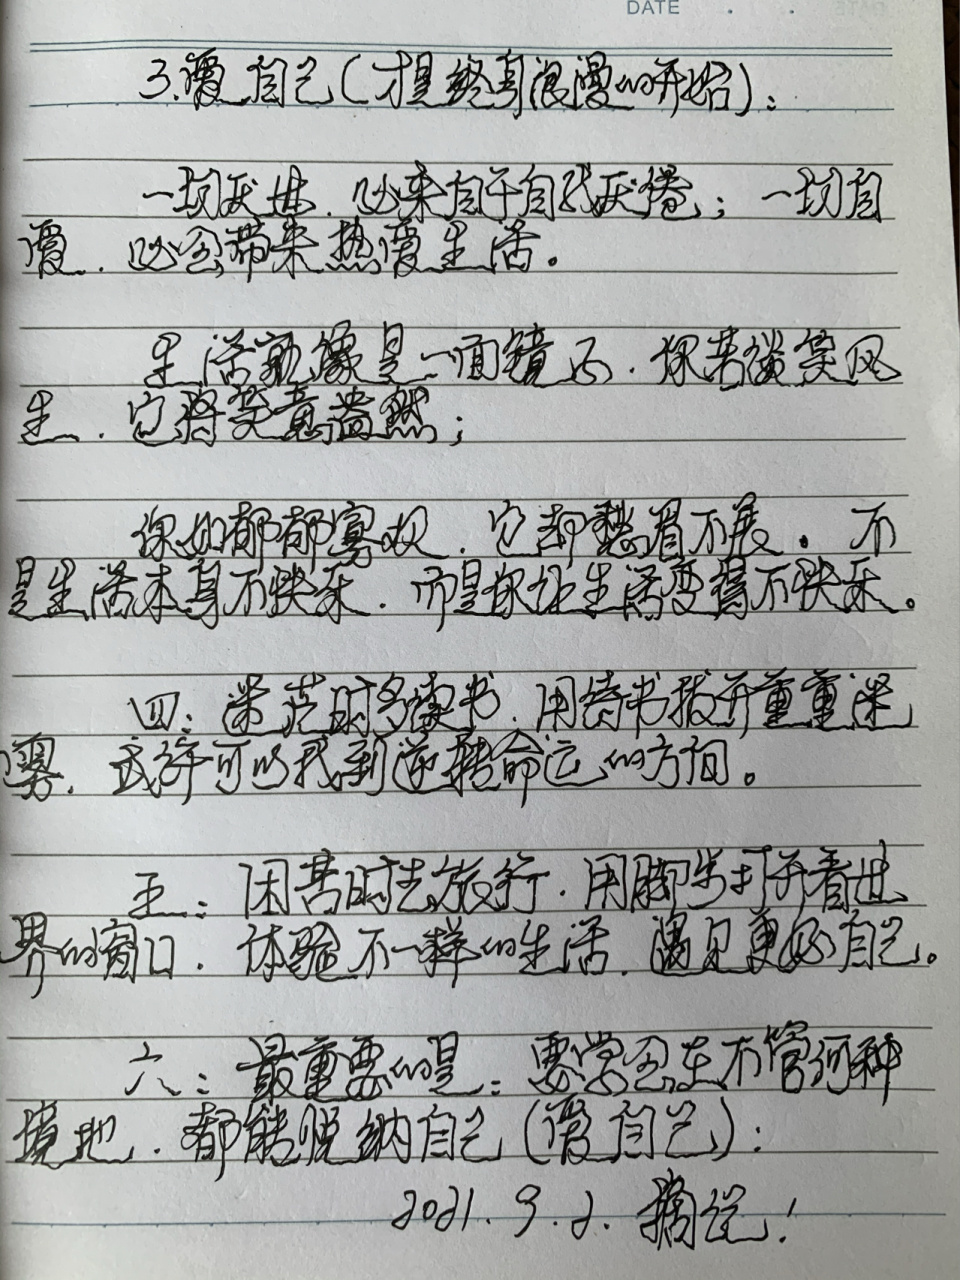 DATE
3.爱自己(才是终身浪漫的开始):
一切厌世.必来自于自我厌倦;一切自
爱.必会带来热爱生活。
生活就像是一面镜子.你若谈笑风
生.它将笑意盎然;
你如郁郁寡欢.它却愁眉不展。不
是生活本身不快乐.而是你让生活变得不快乐。
四:迷茫时多读书.用诗书拨开重重迷
雾.或许可以找到逆转命运的方向。
五:困苦时去旅行.用脚步打开看世
界的窗口.体验不一样的生活.遇见更好自己。
六:最重要的是:要学会在不管何种
境地.都能悦纳自己(爱自己):
2021.9.2.摘说!